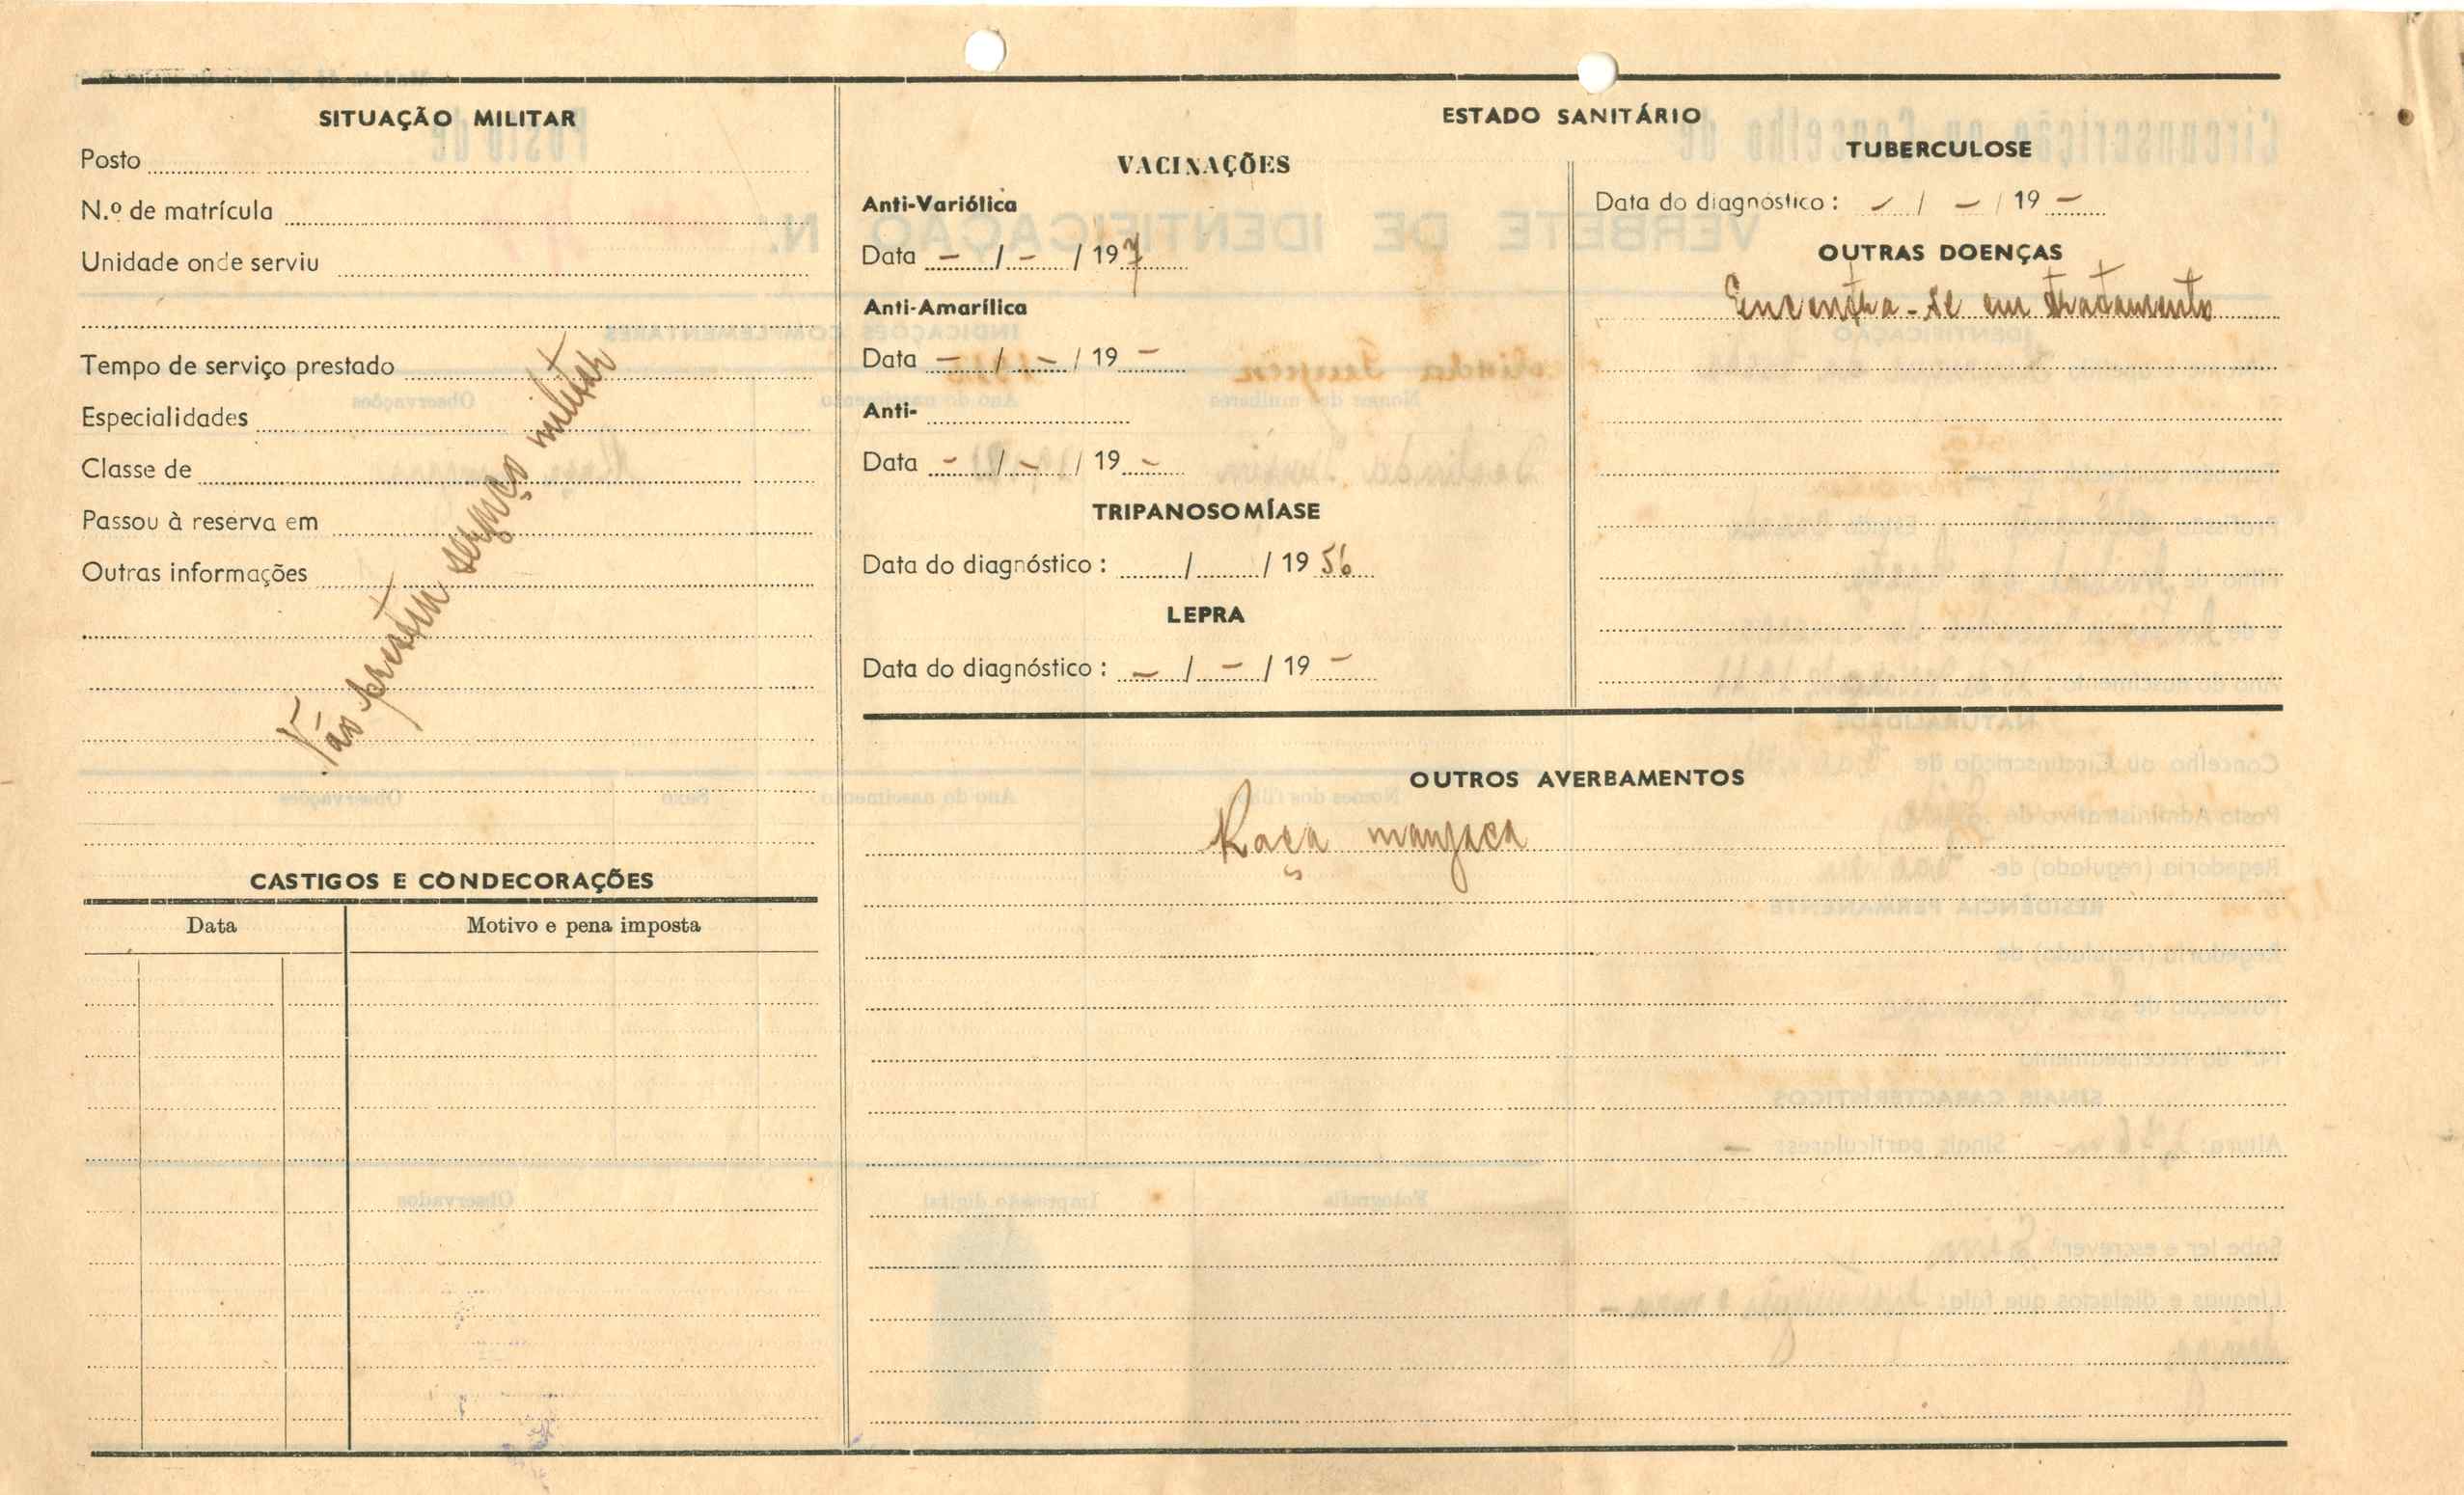 SITUAÇÃO MILITAR
Posto
N.º de matrícula
Unidade onde serviu
Tempo de serviço prestado
Especialidades
Classe de
Passou à reserva em
Outras informações
Não prestou serviço militar
CASTIGOS E CONDECORAÇÕES
Data Motivo e pena imposta
ESTADO SANITÁRIO
VACINAÇÕES
Anti-Variólica
Data - / - / 197
Anti-Amarílica
Data - / - / 19 -
Anti-
Data - / - / 19 -
TRIPANOSOMÍASE
Data do diagnóstico : / / 19 56
LEPRA
Data do diagnóstico : - / - / 19 -
TUBERCULOSE
Data do diagnóstico : - / - / 19 -
OUTRAS DOENÇAS
Encontra-se em tratamento
OUTROS AVERBAMENTOS
Raça manjaca